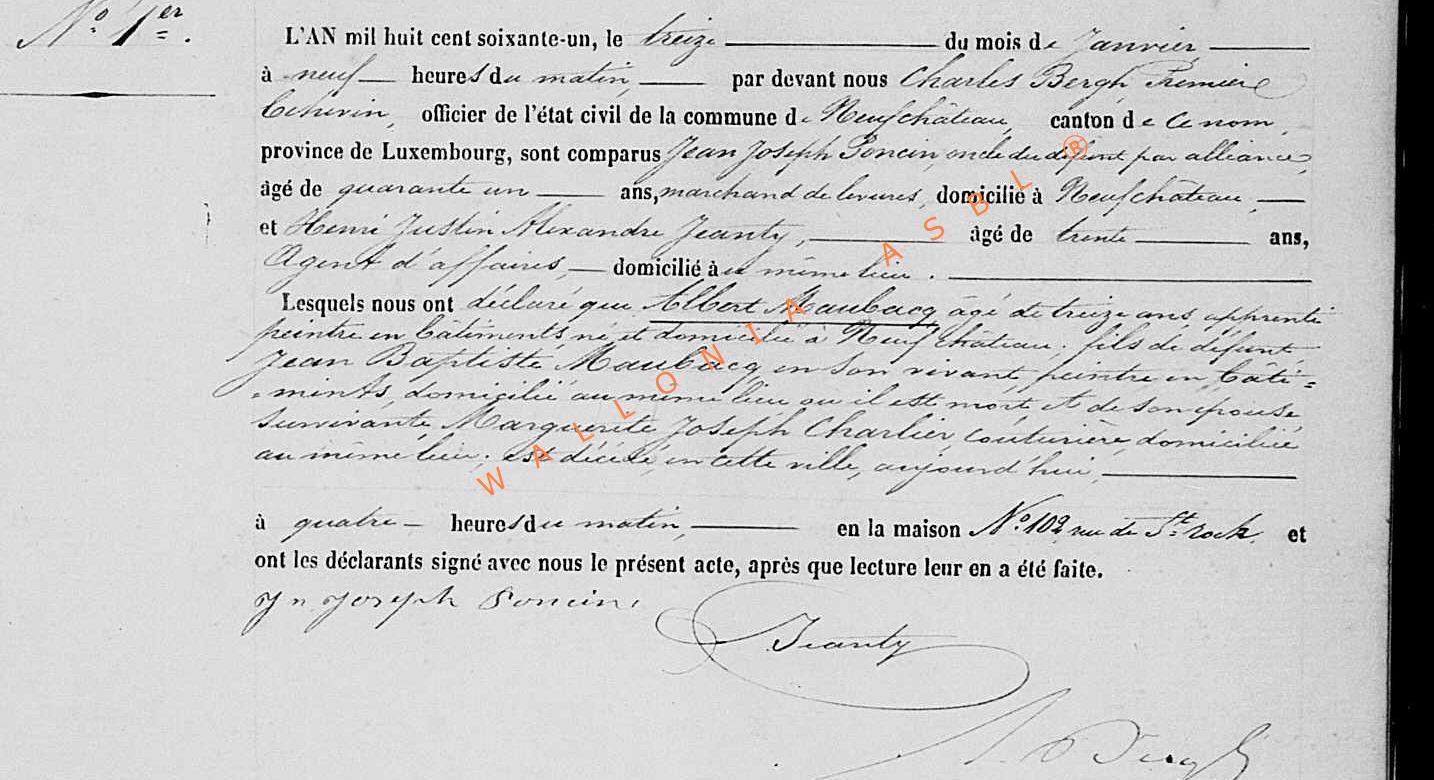 N.º 1.er
L'AN mil huit cent soixante-un, le treize du mois de Janvier
à neuf heures du matin, par devant nous Charles Bergh, Premier
Echevin, officier de l'état civil de la commune de Neufchâteau, canton de ce nom,
province de Luxembourg, sont comparus Jean Joseph Poncin, oncle du défunt par alliance,
âgé de quarante un ans, marchand de levures, domicilié à Neufchâteau,
et Henri Justin Alexandre Jeanty, âgé de trente ans,
Agent d'affaires, domicilié au même lieu.
Lesquels nous ont déclaré que Albert Maubacq âgé de treize ans apprenti
peintre en bâtiments né et domicilié à Neufchâteau, fils de défunt
Jean Baptiste Maubacq en son vivant, peintre en bâti=
=ments, domicilié au même lieu ou il est mort et de son épouse
survivante Marguerite Joseph Charlier couturière, domiciliée
au même lieu; est décédé, en cette ville, aujourd'hui,
à quatre heures du matin, en la maison N.º 102 rue de St. rock, et
ont les déclarants signé avec nous le présent acte, après que lecture leur en a été faite.
Jn Joseph Poncin
Jeanty
Bergh
WALLONIA ASBL ®